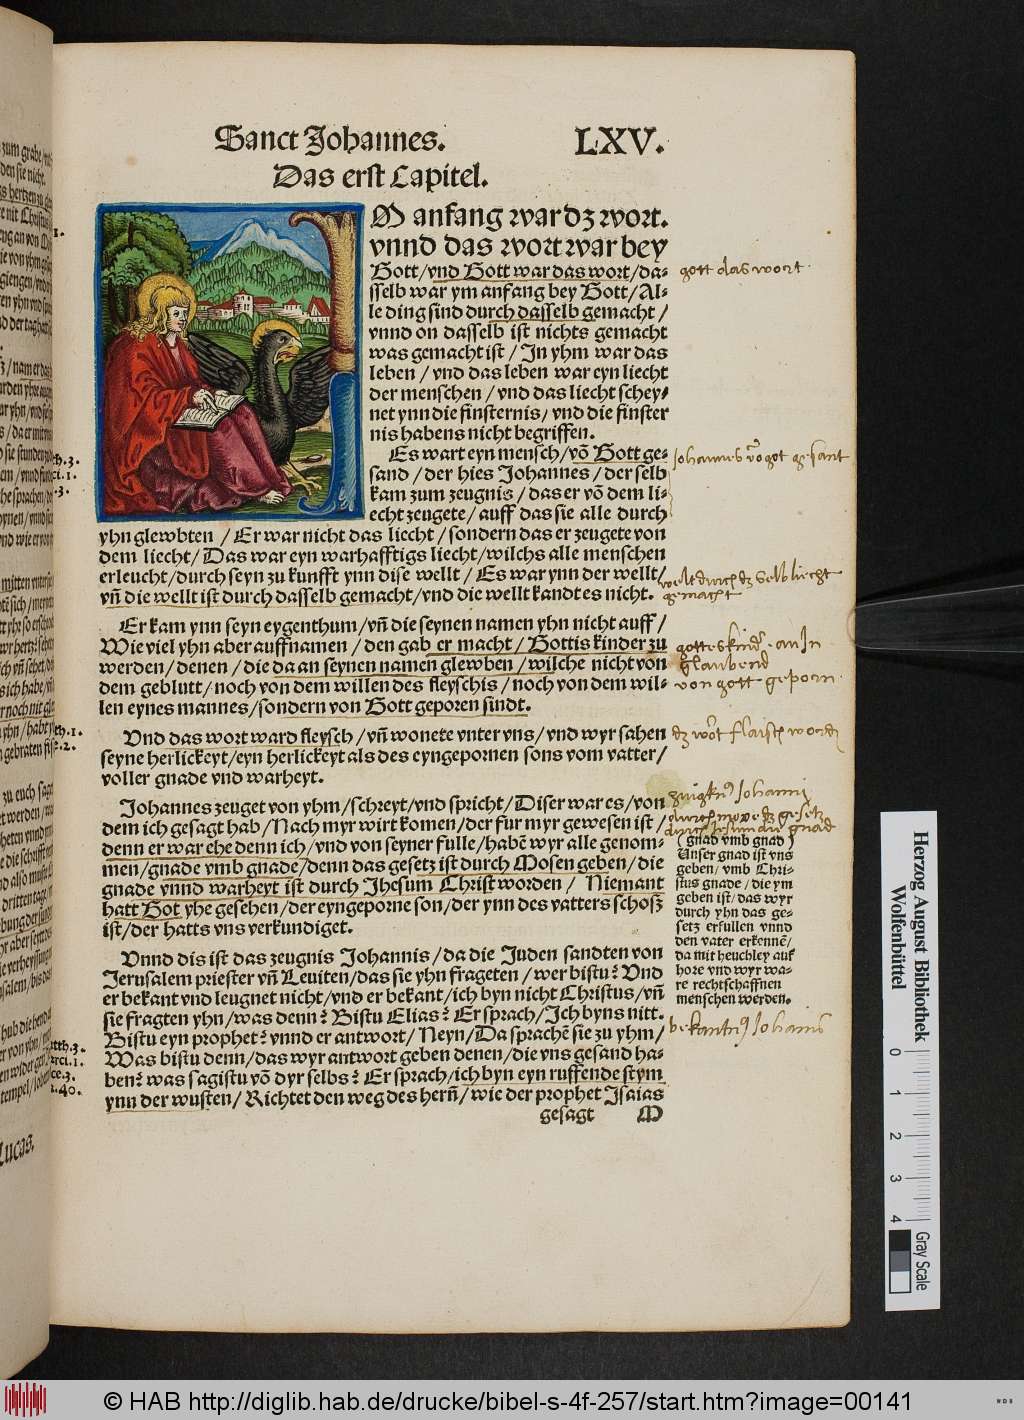 Sanct Johannes. LXV.
Das erst Capitel.
M anfang war dz wort.
vnnd das wort war bey
Gott/vnd Gott war das wort/da-
sselb war ym anfang bey Gott/Al-
le ding sind durch dasselb gemacht/
vnnd on dasselb ist nichts gemacht
was gemacht ist/In yhm war das
leben/vnd das leben war eyn liecht
der menschen/vnd das liecht schey-
net ynn die finsternis/vnd die finster
nis habens nicht begriffen.
Es wart eyn mensch/võ Gott ge-
sand/der hies Johannes/der selb
kam zum zeugnis/das er võ dem li-
echt zeugete/auff das sie alle durch
yhn glewbten/Er war nicht das liecht/sondern das er zeugete von
dem liecht/Das war eyn warhafftigs liecht/wilchs alle menschen
erleucht/durch seyn zu kunfft ynn dise wellt/Es war ynn der wellt/
vñ die wellt ist durch dasselb gemacht/vnd die wellt kandt es nicht.
Er kam ynn seyn eygenthum/vñ die seynen namen yhn nicht auff/
Wie viel yhn aber auffnamen/den gab er macht/Gottis kinder zu
werden/denen/die da an seynen namen glewben/wilche nicht von
dem geblutt/noch von dem willen des fleyschis/noch von dem wil-
len eynes mannes/sondern von Gott geporen sindt.
Vnd das wort ward fleysch/vñ wonete vnter vns/vnd wyr sahen
seyne herlickeyt/eyn herlickeyt als des eyngepornen sons vom vatter/
voller gnade vnd warheyt.
Johannes zeuget von yhm/schreyt/vnd spricht/Diser war es/von
dem ich gesagt hab/Nach myr wirt komen/der fur myr gewesen ist/
denn er war ehe denn ich/vnd von seyner fulle/habē wyr alle genom-
men/gnade vmb gnade/denn das gesetz ist durch Mosen geben/die
gnade vnnd warheyt ist durch Jhesum Christ worden/ Niemant
hatt Got yhe gesehen/der eyngeporne son/der ynn des vatters schosz
ist/der hatts vns verkundiget.
Vnnd dis ist das zeugnis Johannis/da die Juden sandten von
Jerusalem priester vñ Leuiten/das sie yhn frageten/wer bistu? Vnd
er bekant vnd leugnet nicht/vnd er bekant/ich byn nicht Christus/vñ
sie fragten yhn/was denn? Bistu Elias? Er sprach/Ich byns nitt.
Bistu eyn prophet? vnnd er antwort/Neyn/Da sprachē sie zu yhm/
Was bistu denn/das wyr antwort geben denen/die vns gesand ha-
ben? was sagistu võ dyr selbs? Er sprach/ich byn eyn ruffende stym
ynn der wusten/Richtet den weg des herñ/wie der prophet Isaias
gesagt M
gott das wort.
Johannes võ got gesant
welt durch dz selb liecht
gemacht
gottes kinder. an In
glaubend
von gott geporn.
dz wort flaisch worden
(gnad vmb gnad)
Unser gnad ist vns
geben/vmb Chri-
stus gnade/die ym
geben ist/das wyr
durch yhn das ge-
setz erfullen vnnd
den vater erkennē/
da mit heuchley auf
hore vnd wyr wa-
re rechtschaffnen
menschen werden.
Lucas.
Herzog August Bibliothek
Wolfenbüttel
0 1 2 3 4
Gray Scale
© HAB http://diglib.hab.de/drucke/bibel-s-4f-257/start.htm?image=00141